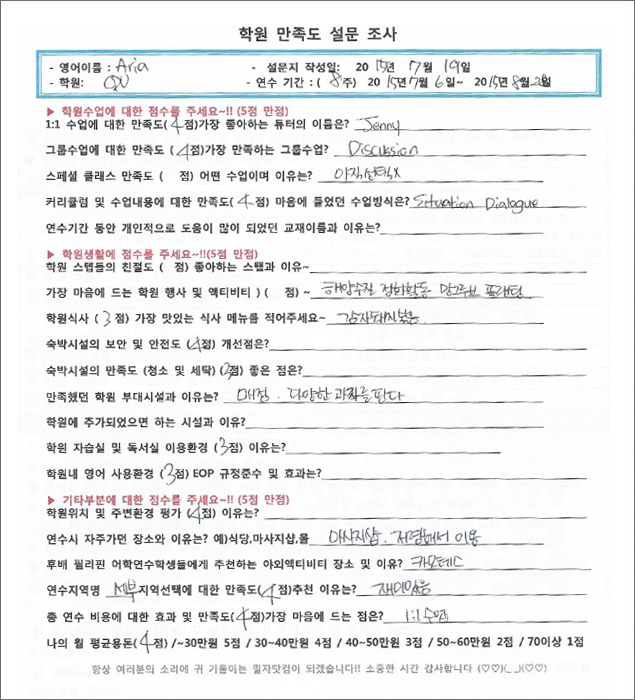 학원 만족도 설문 조사
- 영어이름 : Aria - 설문지 작성일: 2015년 7월 19일
- 학원: CDU - 연수 기간 : ( 8주) 2015년 7월 6일~ 2015년 8월 28일
▶ 학원수업에 대한 점수를 주세요~!! (5점 만점)
1:1 수업에 대한 만족도( 4점)가장 좋아하는 튜터의 이름은? Jenny
그룹수업에 대한 만족도 ( 4점)가장 만족하는 그룹수업? Discussion
스페셜 클래스 만족도 ( 점) 어떤 수업이며 이유는? 아직선택x
커리큘럼 및 수업내용에 대한 만족도( 4점) 마음에 들었던 수업방식은? Situation Dialogue
연수기간 동안 개인적으로 도움이 많이 되었던 교재이름과 이유는?
▶ 학원생활에 점수를 주세요~!!(5점 만점)
학원 스텝들의 친절도 ( 점) 좋아하는 스탭과 이유~
가장 마음에 드는 학원 행사 및 액티비티 ) ( 점) ~ 해양수질 정화활동 망그로브 플래팅
학원식사 ( 3점) 가장 맛있는 식사 메뉴를 적어주세요~ 감자돼지볶음
숙박시설의 보안 및 안전도 (4점) 개선점은?
숙박시설의 만족도 (청소 및 세탁) (3점) 좋은 점은?
만족했던 학원 부대시설과 이유는? 매점. 다양한 과자를 판다
학원에 추가되었으면 하는 시설과 이유?
학원 자습실 및 독서실 이용환경 (3점) 이유는?
학원내 영어 사용환경 (3점) EOP 규정준수 및 효과는?
▶ 기타부분에 대한 점수를 주세요~!! (5점 만점)
학원위치 및 주변환경 평가 (4점) 이유는?
연수시 자주가던 장소와 이유는? 예)식당,마사지샵,몰 마사지샵. 저렴해서 이용
후배 필리핀 어학연수학생들에게 추천하는 야외액티비티 장소 및 이유? 카모테스
연수지역명 세부 지역선택에 대한 만족도(4점)추천 이유는? 재미있음
총 연수 비용에 대한 효과 및 만족도(4점)가장 마음에 드는 점은? 1:1수업
나의 월 평균용돈(4점) /~30만원 5점 / 30~40만원 4점 / 40~50만원 3점 / 50~60만원 2점 / 70이상 1점
항상 여러분의 소리에 귀 기울이는 필자닷컴이 되겠습니다!! 소중한 시간 감사합니다 (♡♡)(_ _)(♡♡)